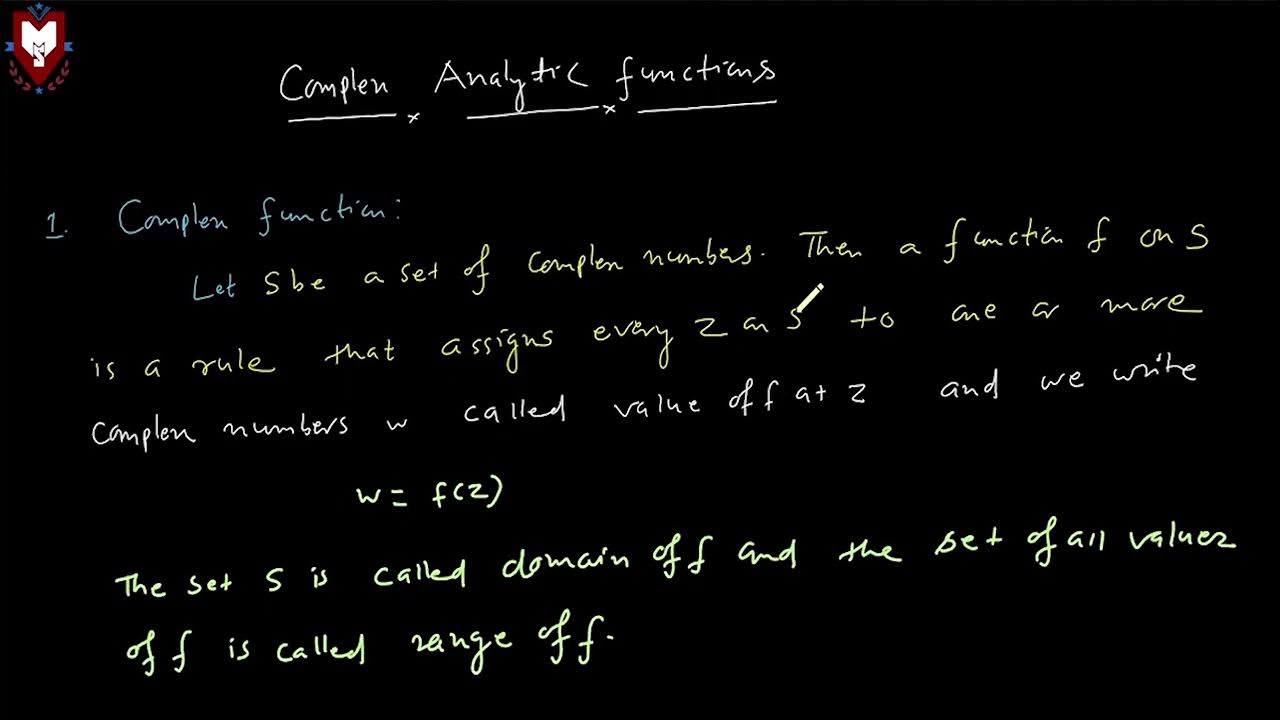 MMS
Complex Analytic functions
1. Complex function:
Let S be a set of complex numbers. Then a function f on S
is a rule that assigns every z in S to one or more
complex numbers w called value of f at z and we write
w = f(z)
The set S is called domain of f and the set of all values
of f is called range of f.